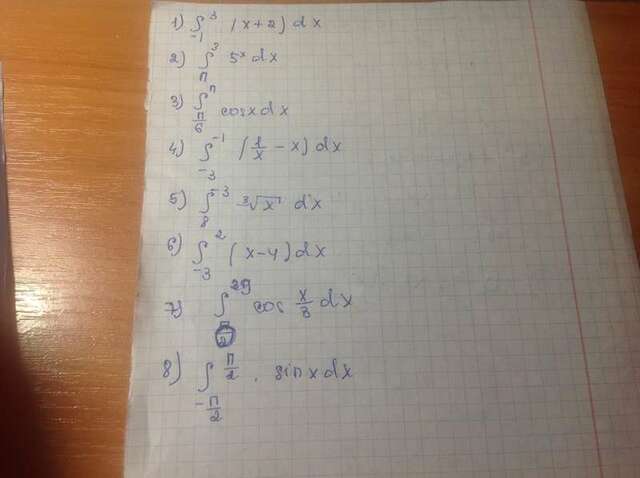 1) ∫₋₁³ (x+2) dx
2) ∫ₙ³ 5ˣ dx
3) ∫_{π/6}^{π} cosx dx
4) ∫₋₃⁻¹ (1/x - x) dx
5) ∫₈⁻³ ³√x dx
6) ∫₋₃² (x-4) dx
7) ∫ cos x/3 dx
8) ∫_{-π/2}^{π/2} sinx dx